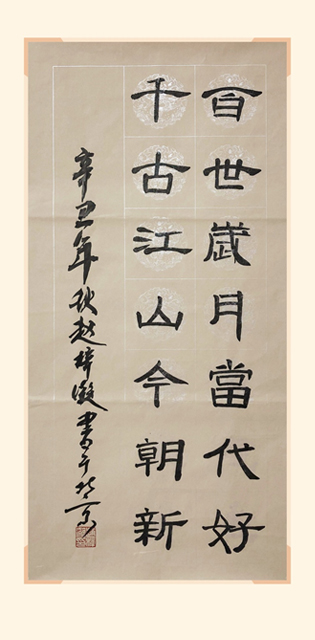 百世歲月當代好
千古江山今朝新
辛丑年秋趙梓凝書于北京